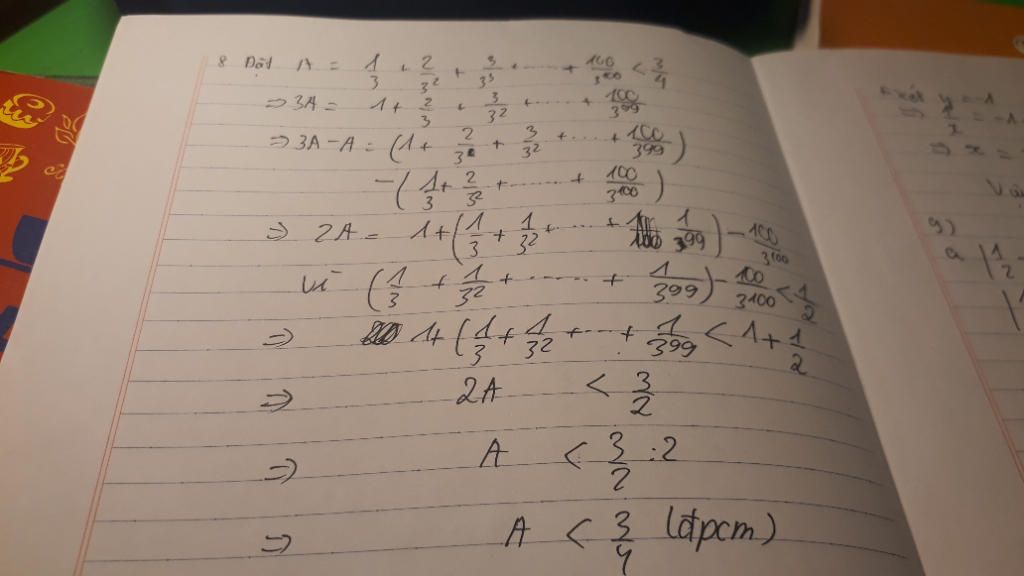 8 Đặt A = 1/3 + 2/3² + 3/3³ + ..... + 100/3¹⁰⁰ < 3/4
⇒ 3A = 1 + 2/3 + 3/3² + ..... + 100/3⁹⁹
⇒ 3A - A = (1 + 2/3 + 3/3² + .... + 100/3⁹⁹)
- (1/3 + 2/3² + ...... + 100/3¹⁰⁰)
⇒ 2A = 1 + (1/3 + 1/3² + .... + 1/3⁹⁹) - 100/3¹⁰⁰
Vì (1/3 + 1/3² + ...... + 1/3⁹⁹) - 100/3¹⁰⁰ < 1/2
⇒ 1 + (1/3 + 1/3² + .... + 1/3⁹⁹ < 1 + 1/2
⇒ 2A < 3/2
⇒ A < 3/2 : 2
⇒ A < 3/4 (đpcm)
xét y = -1
⇒ 1/x = -1
⇒ x =
9)
a |1/2 -